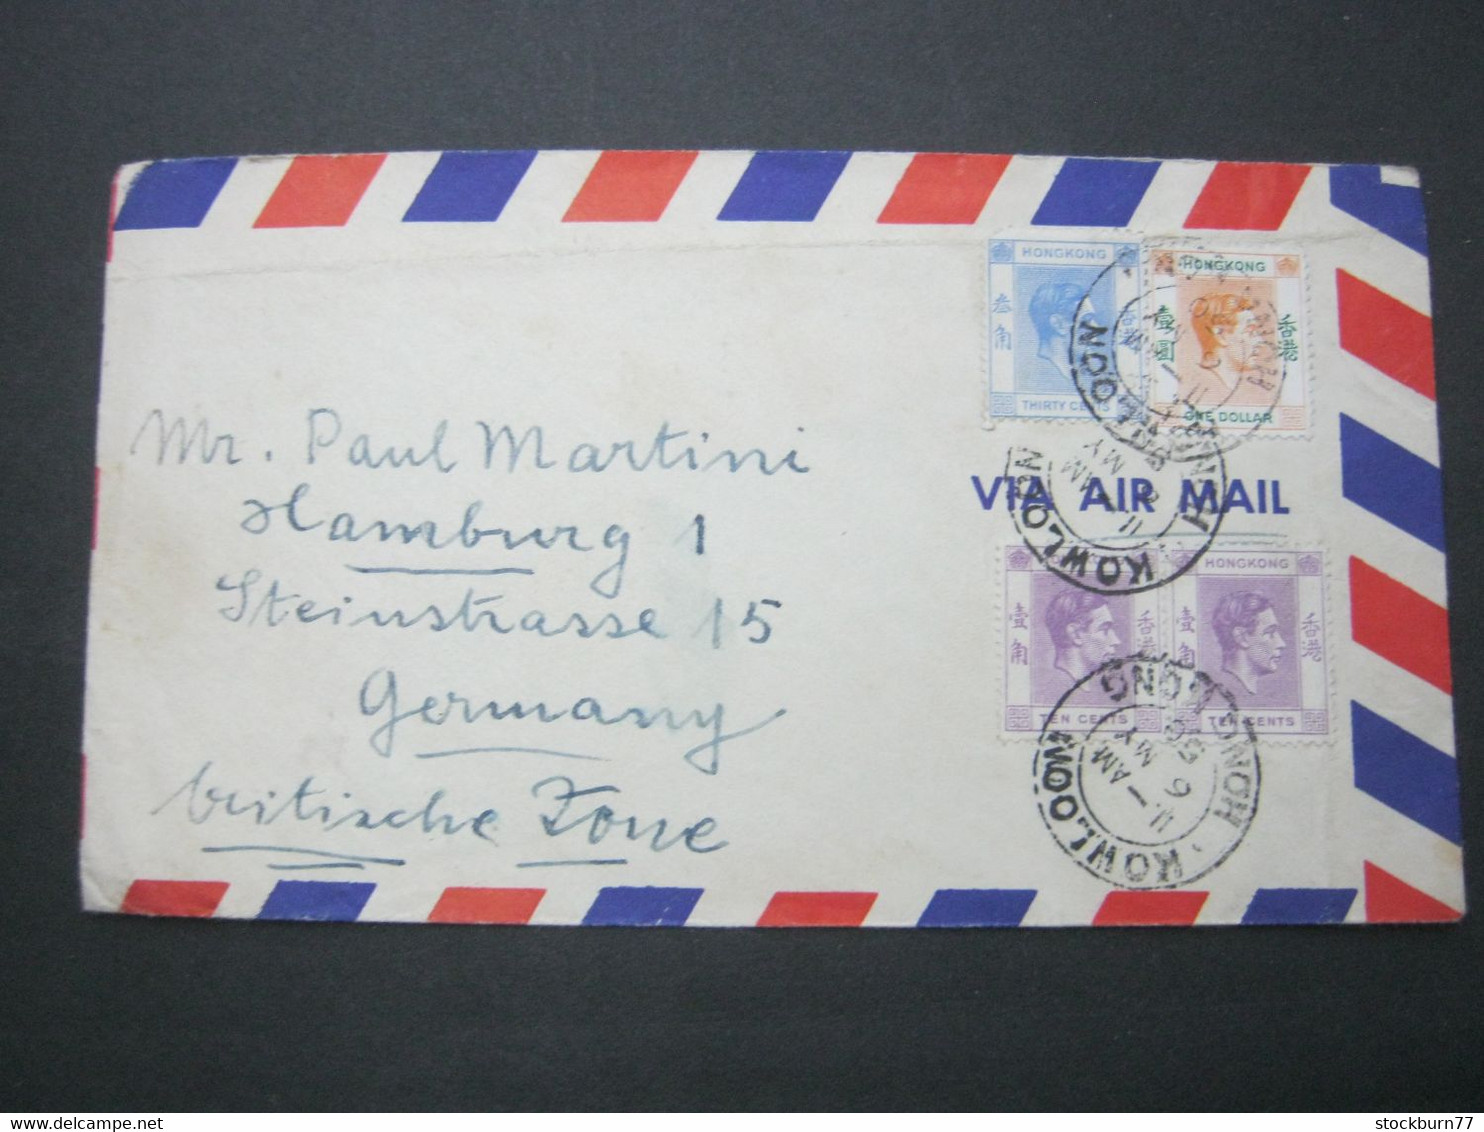 HONGKONG
叁角
香港
THIRTY CENTS
HONGKONG
壹圓
香港
ONE DOLLAR
VIA AIR MAIL
KOWLOON
KOWLOON
11 - AM
MY
Mr. Paul Martini
Hamburg 1
Steinstrasse 15
Germany
britische Zone
壹角
香港
TEN CENTS
HONGKONG
壹角
香港
TEN CENTS
KOWLOON · HONG KONG
11 - AM
MY
stockburn77